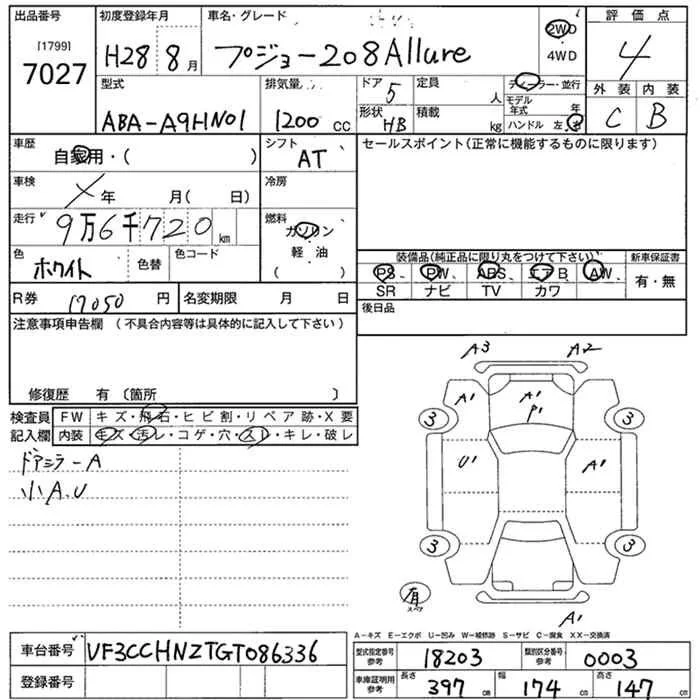 出品番号 初度登録年月 車名・グレード 評価点
[1799]
7027 H28 8月 プジョー208Allure 2WD・4WD 4
型式 排気量 ドア 5 定員 人 ディーラー・並行 外装 内装
ABA-A9HN01 1200cc 形状 HB 積載 kg モデル年式 年 C B
ハンドル 左、右
車歴 自家用・( ) シフト AT セールスポイント(正常に機能するものに限ります)
車検 メ年 月( 日) 冷房
走行 9万6千720km 燃料 ガソリン・軽・油( )
色 ホワイト 色替 色コード 装備品(純正品に限り丸をつけて下さい) 新車保証書
PS、PW、ABS、エアB、AW、 有・無
SR ナビ TV カワ
R券 17050円 名変期限 月 日 後日品
注意事項申告欄(不具合内容等は具体的に記入して下さい)
修復歴 有〔箇所 〕
検査員 FW キズ・飛石・ヒビ割・リペア跡・X要
記入欄 内装 キズ・汚レ・コゲ・穴・スレ・キレ・破レ
ドアミラーA
小A.U
A3 A2
A' A' P'
3 3
U' A'
3 3
有
スペア
A'
A-キズ E-エクボ U-凹み W-補修跡 S-サビ C-腐食 XX-交換済
車台番号 VF3CCHNZTGT086336 型式指定番号参考 18203 類別区分番号参考 0003
登録番号 車庫証明用参考 長さ 397cm 幅 174cm 高さ 147cm